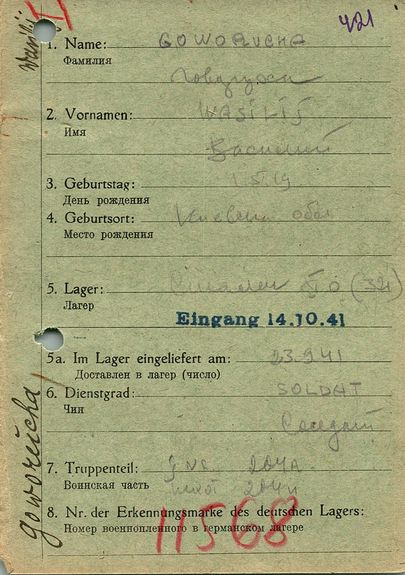 421
1. Name: GOWORUCHA
Фамилия
Говоруха
2. Vornamen: WASILIJ
Имя
Василий
3. Geburtstag:
День рождения
4. Geburtsort: обл
Место рождения
5. Lager: (321)
Лагер
Eingang 14.10.41
5a. Im Lager eingeliefert am: 23.9.41
Доставлен в лагер (число)
6. Dienstgrad: SOLDAT
Чин
7. Truppenteil:
Воинская часть
8. Nr. der Erkennungsmarke des deutschen Lagers:
Номер военнопленного в германском лагере
11568